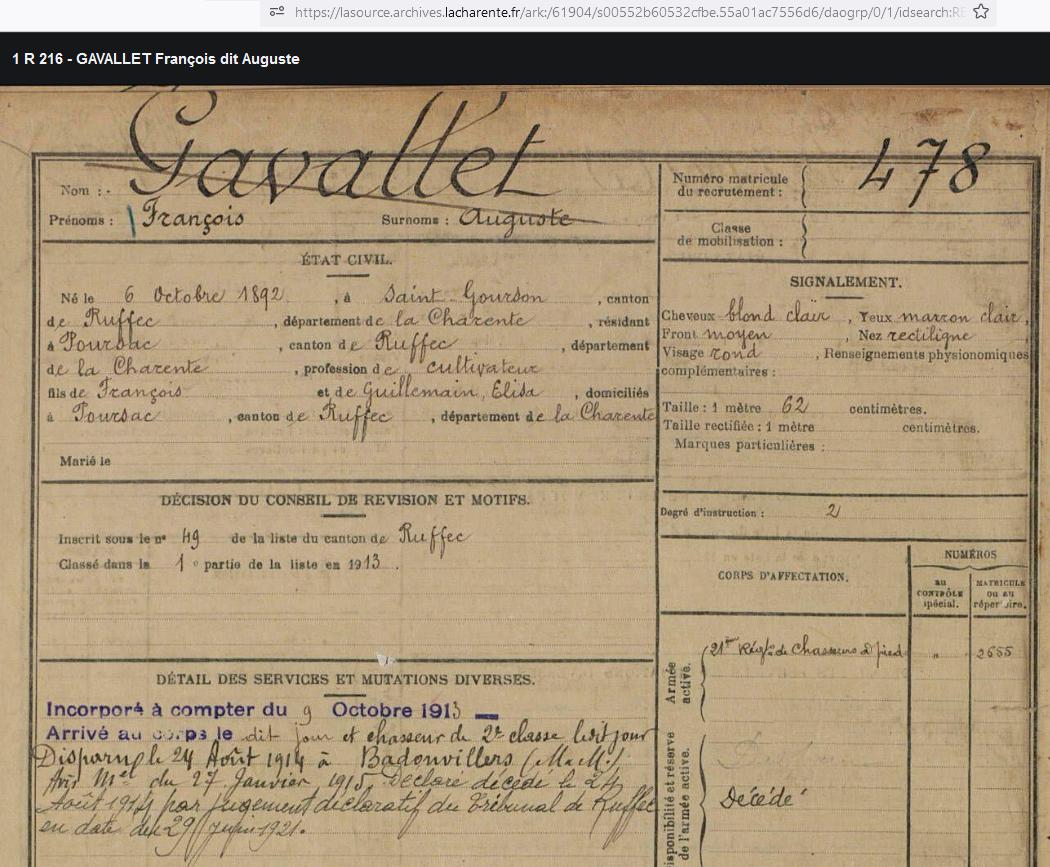 https://lasource.archives.lacharente.fr/ark:/61904/s00552b60532cfbe.55a01ac7556d6/daogrp/0/1/idsearch:RE
1 R 216 - GAVALLET François dit Auguste
Nom : Gavallet
Prénoms : François Surnoms : Auguste
Numéro matricule du recrutement : 478
Classe de mobilisation :
ÉTAT CIVIL.
Né le 6 Octobre 1892, à Saint-Gourson, canton
de Ruffec, département de la Charente, résidant
à Poursac, canton de Ruffec, département
de la Charente, profession de cultivateur
fils de François et de Guillemain, Elisa, domiciliés
à Poursac, canton de Ruffec, département de la Charente
Marié le
SIGNALEMENT.
Cheveux blond clair, Yeux marron clair,
Front moyen, Nez rectiligne
Visage rond, Renseignements physionomiques
complémentaires :
Taille : 1 mètre 62 centimètres.
Taille rectifiée : 1 mètre centimètres.
Marques particulières :
Degré d'instruction : 2
DÉCISION DU CONSEIL DE REVISION ET MOTIFS.
Inscrit sous le n° 49 de la liste du canton de Ruffec
Classé dans la 1e partie de la liste en 1913.
CORPS D'AFFECTATION.
NUMÉROS
au CONTRÔLE spécial.
MATRICULE ou au répertoire.
Armée active.
21me Régt de Chasseurs à pied " 2655
Disponibilité et réserve de l'armée active.
Décédé
DÉTAIL DES SERVICES ET MUTATIONS DIVERSES.
Incorporé à compter du 9 Octobre 1913
Arrivé au corps le dit jour et chasseur de 2e classe ledit jour
Disparu le 24 Août 1914 à Badonvillers (M.M.)
Avis Mel du 27 Janvier 1915. Déclaré décédé le 24
Août 1914 par jugement déclaratif du Tribunal de Ruffec
en date du 29 Juin 1921.